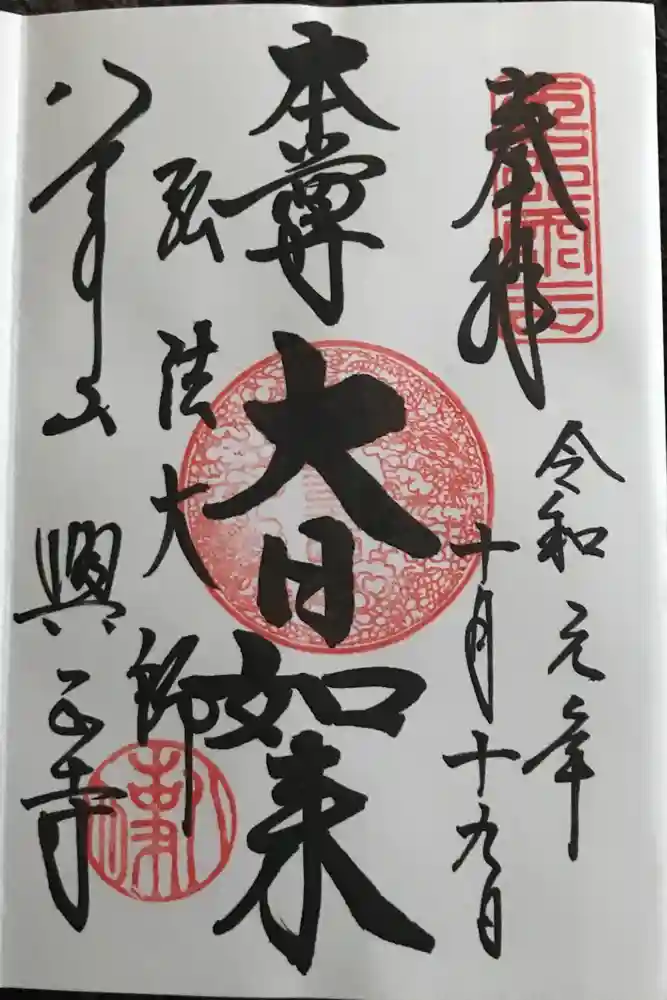 奉拝
令和元年
十月十九日
本尊
大日如来
弘法大師
八事山
興正寺